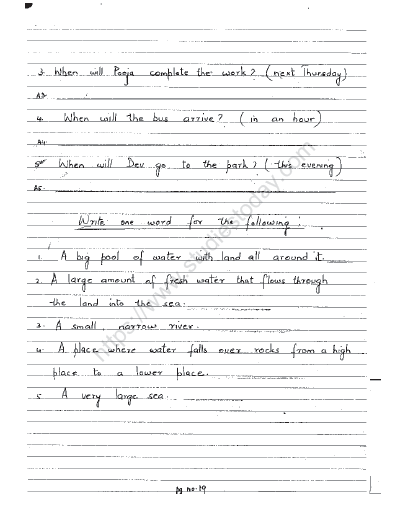 3. When will Pooja complete the work? (next Thursday)
A3.
4. When will the bus arrive? (in an hour)
A4.
5. When will Dev go to the park? (this evening)
A5.
Write one word for the following:
1. A big pool of water with land all around it.
2. A large amount of fresh water that flows through
the land into the sea.
3. A small, narrow river.
4. A place where water falls over rocks from a high
place to a lower place.
5. A very large sea.
https://www.studiestoday.com
pg no. 19